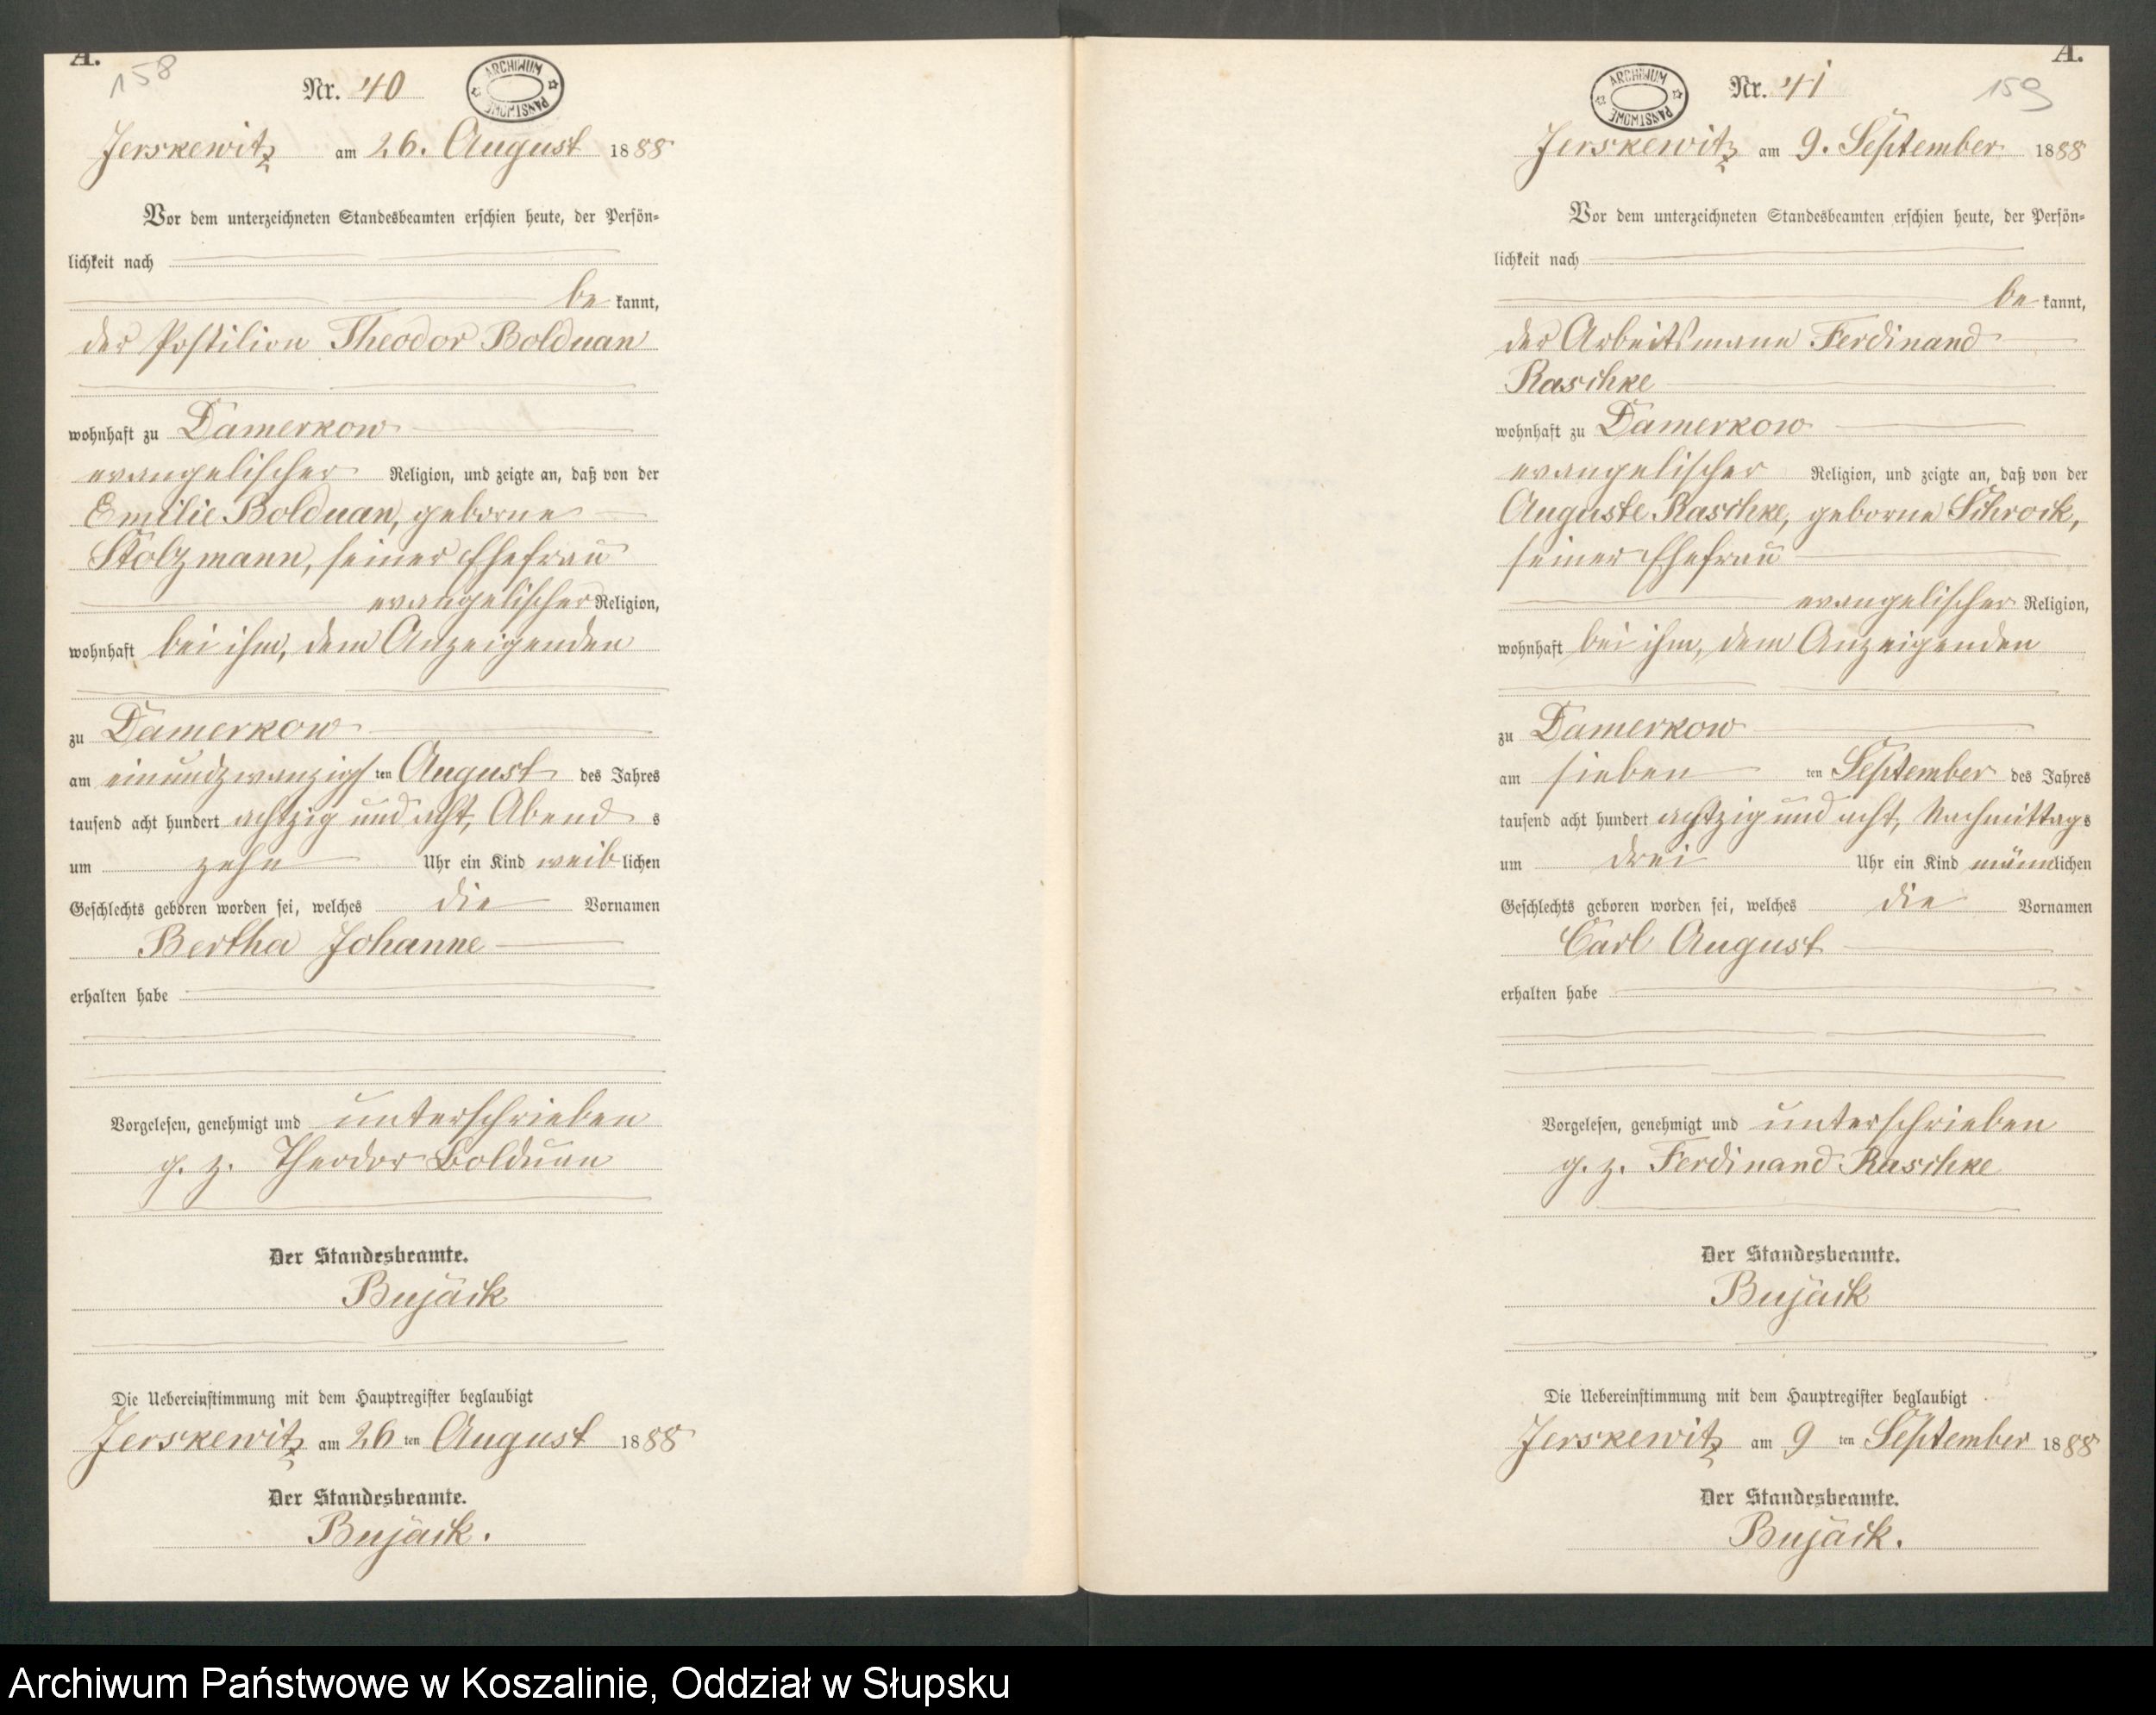 A.
158
Nr. 40
ARCHIWUM PAŃSTWOWE
Jerskewitz am 26. August 1888
Vor dem unterzeichneten Standesbeamten erschien heute, der Persön-
lichkeit nach
be kannt,
der Postilion Theodor Bolduan
wohnhaft zu Damerkow
evangelischer Religion, und zeigte an, daß von der
Emilie Bolduan, geborne
Stolzmann, seiner Ehefrau
evangelischer Religion,
wohnhaft bei ihm, dem Anzeigenden
zu Damerkow
am einundzwanzigs ten August des Jahres
tausend acht hundert achtzig und acht, Abend s
um zehn Uhr ein Kind weib lichen
Geschlechts geboren worden sei, welches die Vornamen
Bertha Johanne
erhalten habe
Vorgelesen, genehmigt und unterschrieben
g. z. Theodor Bolduan
Der Standesbeamte.
Bujäck
Die Uebereinstimmung mit dem Hauptregister beglaubigt
Jerskewitz am 26 ten August 1888
Der Standesbeamte.
Bujäck.
A.
159
Nr. 41
ARCHIWUM PAŃSTWOWE
Jerskewitz am 9. September 1888
Vor dem unterzeichneten Standesbeamten erschien heute, der Persön-
lichkeit nach
be kannt,
der Arbeitsmann Ferdinand
Raschke
wohnhaft zu Damerkow
evangelischer Religion, und zeigte an, daß von der
Auguste Raschke, geborne Schrock,
seiner Ehefrau
evangelischer Religion,
wohnhaft bei ihm, dem Anzeigenden
zu Damerkow
am sieben ten September des Jahres
tausend acht hundert achtzig und acht, Nachmittag s
um drei Uhr ein Kind männ lichen
Geschlechts geboren worden sei, welches die Vornamen
Carl August
erhalten habe
Vorgelesen, genehmigt und unterschrieben
g. z. Ferdinand Raschke
Der Standesbeamte.
Bujäck
Die Uebereinstimmung mit dem Hauptregister beglaubigt
Jerskewitz am 9 ten September 1888
Der Standesbeamte.
Bujäck.
Archiwum Państwowe w Koszalinie, Oddział w Słupsku